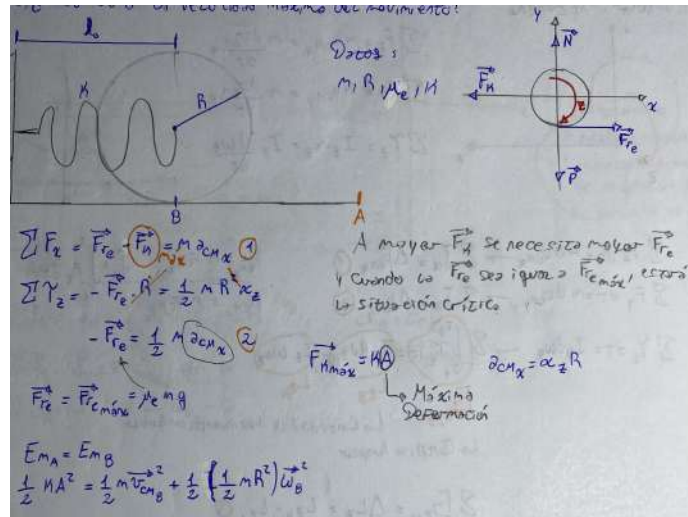 velocidad máxima del movimiento?
l₀
K
R
B
A
Datos:
m, R, μe, K
y
N⃗
F⃗ₖ
x
z
F⃗re
P⃗
ΣFx = F⃗re - F⃗ₖ = m acmx ①
máx
Στz = - F⃗re . R = 1/2 m R² αz
- F⃗re = 1/2 m acmx ②
F⃗re = F⃗remáx = μe m g
A mayor F⃗ₖ se necesita mayor F⃗re
y cuando la F⃗re sea igual a F⃗remáx, estará
la situación crítica
F⃗ₖmáx = KA
acmx = αz R
Máxima
Deformación
EmA = EmB
1/2 KA² = 1/2 m v⃗cmB² + 1/2 (1/2 mR²) ω⃗B²